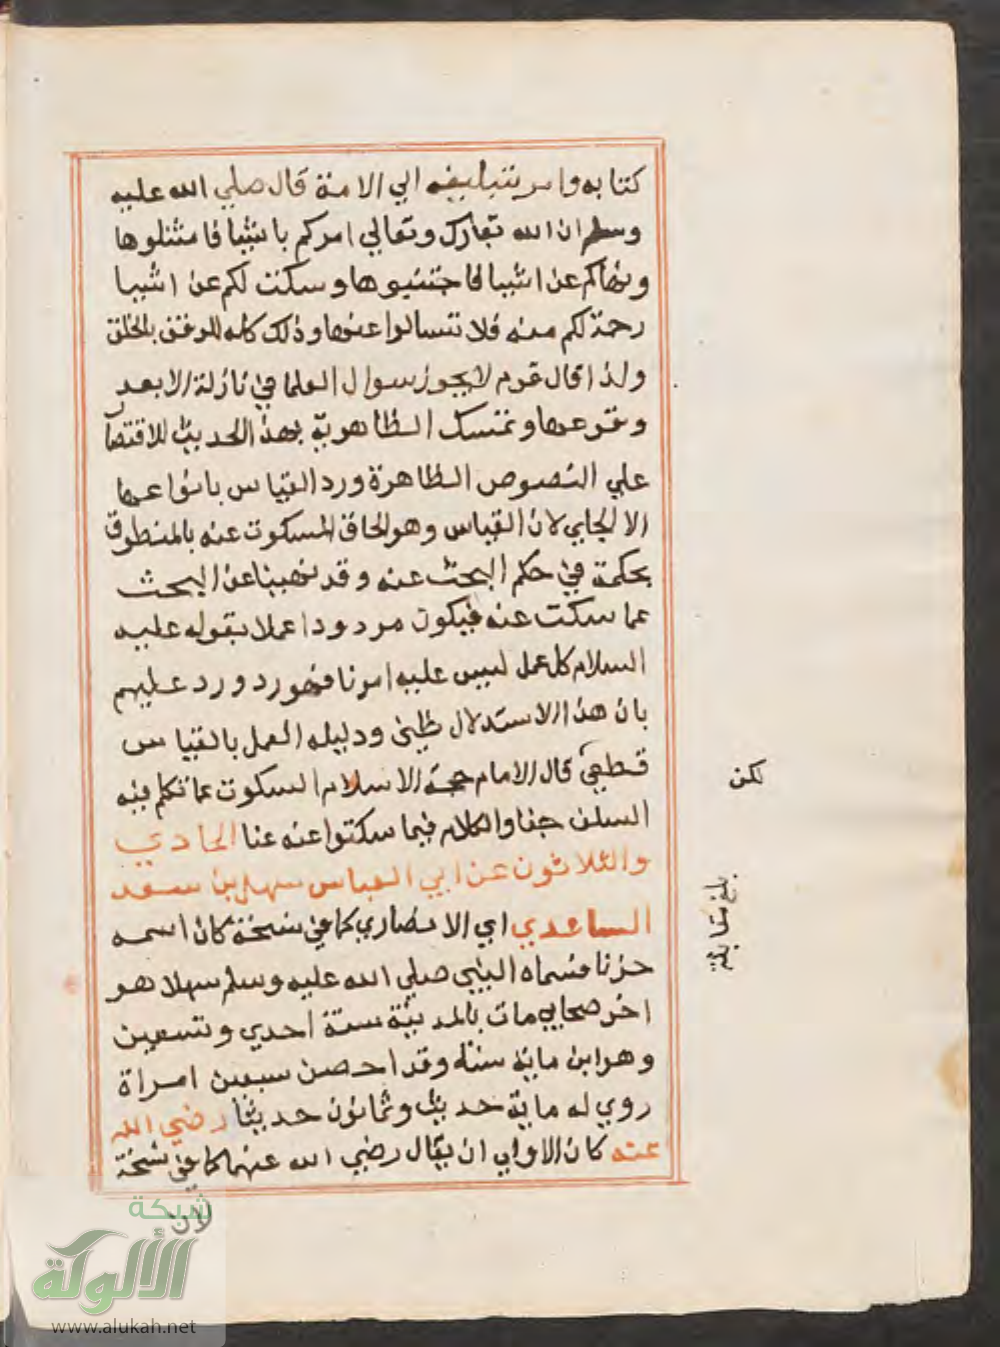 كتابه وامر بتبليغه الي الامة قال صلي الله عليه
وسلم ان الله تبارك وتعالي امركم باشيا فامتثلوها
ونهاكم عن اشيا فاجتنبوها وسكت لكم عن اشيا
رحمة لكم منه فلا تسالوا عنها وذلك كله للرفق بالخلق
ولذا قال قوم لا يجوز سوال العلما في نازلة الا بعد
وقوعها وتمسك الظاهرية بهذا الحديث للاقتصار
علي النصوص الظاهرة ورد القياس بانواعها
الا الجلي لان القياس وهو الحاق المسكوت عنه بالمنطوق
بحكمة في حكم البحث عنه وقد نهينا عن البحث
عما سكت عنه فيكون مردودا عملا بقوله عليه
السلام كل عمل ليس عليه امرنا فهو رد ورد عليهم
بان هذا الاستدلال ظني ودليله العمل بالقياس
قطعي قال الامام حجة الاسلام السكوت عما تكلم فيه
السلف جفا والكلام فيما سكتوا عنه عنا الحادي
والثلاثون عن ابي العباس سهل بن سعد
الساعدي اي الانصاري كما في نسخة كان اسمه
حزنا فسماه النبي صلي الله عليه وسلم سهلا هو
اخر صحابي مات بالمدينة سنة احدي وتسعين
وهو ابن ماية سنة وقد احصن سبعين امراة
روي له ماية حديث وثمانون حديثا رضي الله
عنه كان الاولي ان يقال رضي الله عنهما كما في نسخة
لان
لكن
بلغ مقابلة
شبكة
الألوكة
www.alukah.net